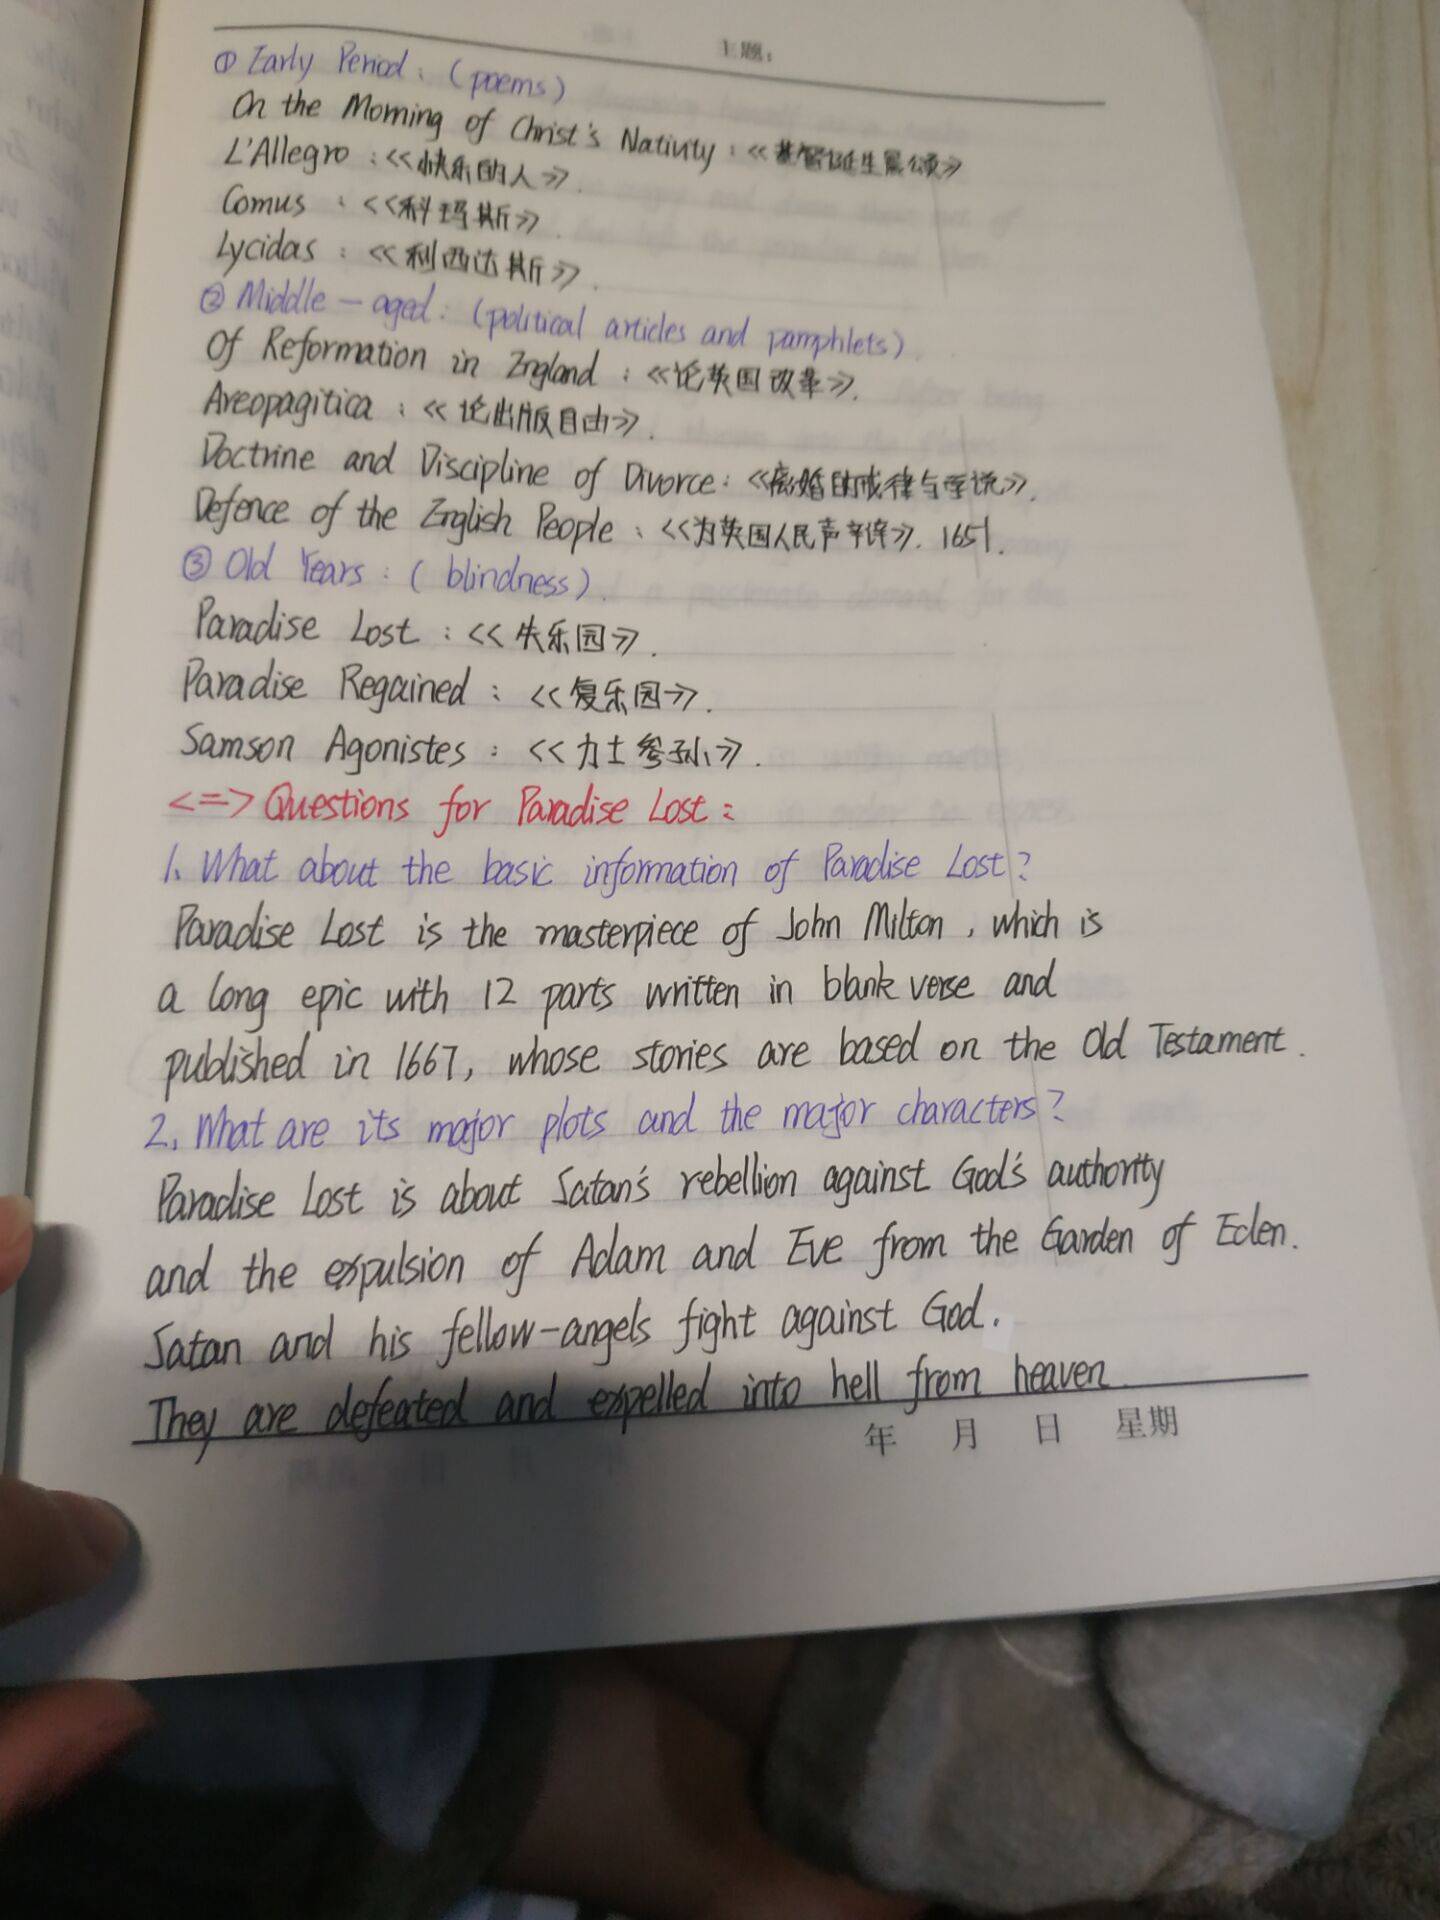 主题:
① Early Period: (poems)
On the Morning of Christ's Nativity: 《基督诞生晨颂》
L'Allegro: 《快乐的人》.
Comus: 《科玛斯》.
Lycidas: 《利西达斯》.
② Middle-aged: (political articles and pamphlets).
Of Reformation in England: 《论英国改革》.
Areopagitica: 《论出版自由》.
Doctrine and Discipline of Divorce: 《离婚的戒律与学说》.
Defence of the English People: 《为英国人民声辩》. 1651.
③ Old Years: (blindness).
Paradise Lost: 《失乐园》.
Paradise Regained: 《复乐园》.
Samson Agonistes: 《力士参孙》.
<=> Questions for Paradise Lost:
1. What about the basic information of Paradise Lost?
Paradise Lost is the masterpiece of John Milton, which is
a long epic with 12 parts written in blank verse and
published in 1667, whose stories are based on the Old Testament.
2. What are its major plots and the major characters?
Paradise Lost is about Satan's rebellion against God's authority
and the expulsion of Adam and Eve from the Garden of Eden.
Satan and his fellow-angels fight against God.
They are defeated and expelled into hell from heaven.
年 月 日 星期